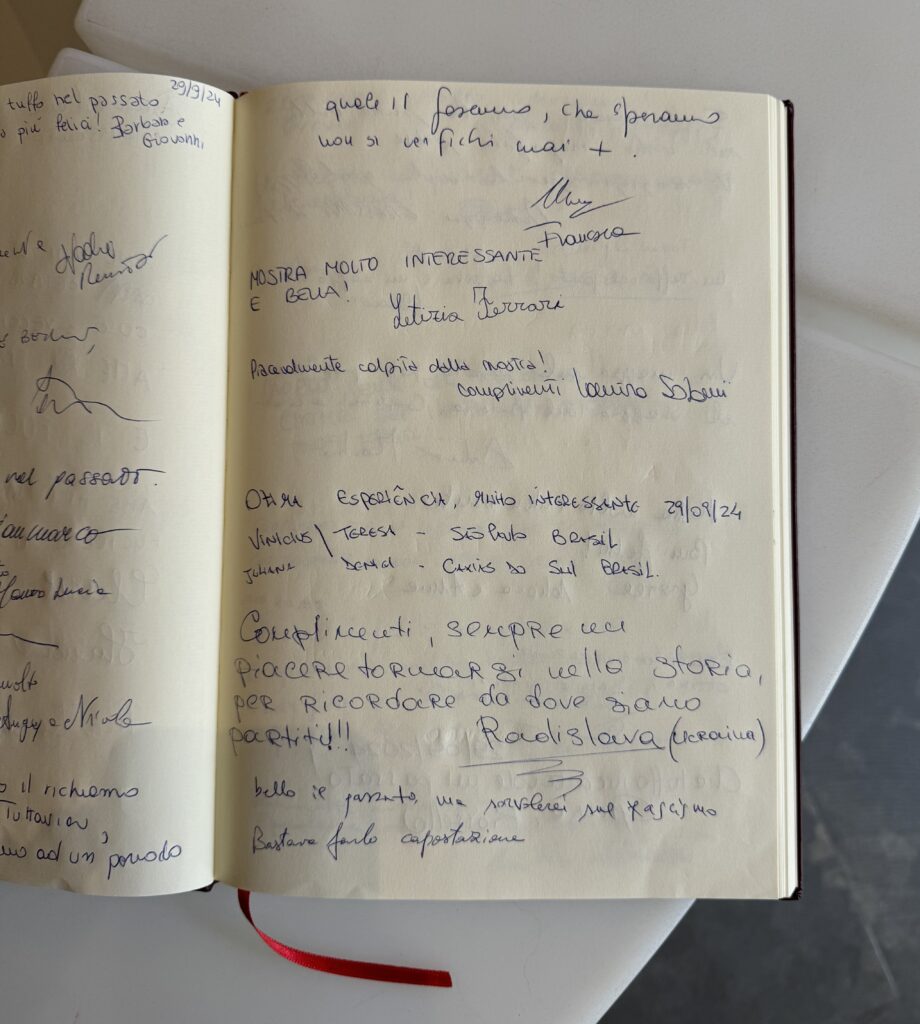 29/9/24
tuffo nel passato
più felici! Barbara e
Giovanni
nel passato.
Gianmarco
Lucia
molto
e Nicola
o il richiamo
Tuttavia,
ad un periodo
quale il fascismo, che speriamo
non si verifichi mai +.
Francesca
MOSTRA MOLTO INTERESSANTE
E BELLA!
Letizia Ferrari
Piacevolmente colpita dalla mostra!
complimenti
OTIMA ESPERIÊNCIA, MUITO INTERESSANTE 29/09/24
VINICIUS \ TERESA - SÃO PAULO BRASIL
JULIANA - CAXIAS DO SUL BRASIL.
Complimenti, sempre un
piacere tornarsi nella storia,
per ricordare da dove siamo
partiti!!!
Radislava (Ucraina)
bello il passato, ma sorvolerei sul fascismo
Bastava farlo capostazione